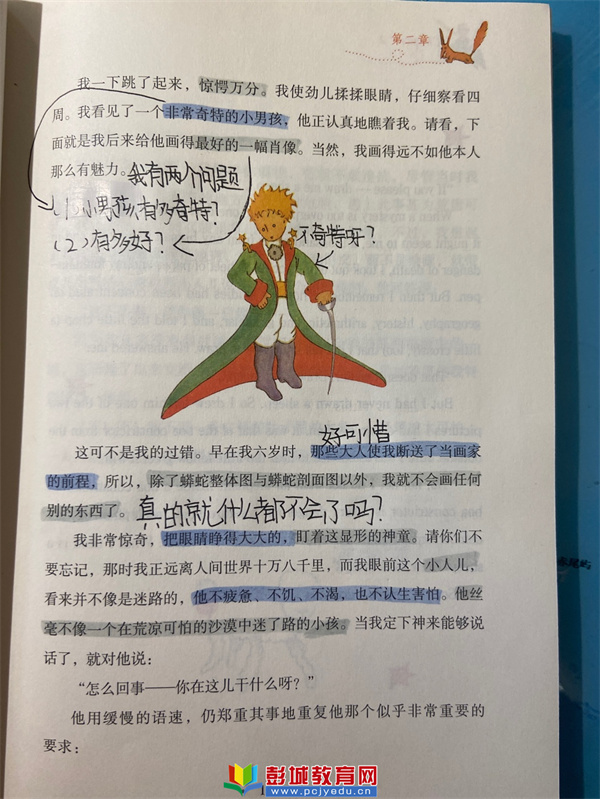 第二章
我一下跳了起来，惊愕万分。我使劲儿揉揉眼睛，仔细察看四
周。我看见了一个非常奇特的小男孩，他正认真地瞧着我。请看，下
面就是我后来给他画得最好的一幅肖像。当然，我画得远不如他本人
那么有魅力。
我有两个问题
(1)小男孩有多奇特？
(2)有多好？
不奇特呀？
好可惜
这可不是我的过错。早在我六岁时，那些大人使我断送了当画家
的前程，所以，除了蟒蛇整体图与蟒蛇剖面图以外，我就不会画任何
别的东西了。
真的就什么都不会了吗？
我非常惊奇，把眼睛睁得大大的，盯着这显形的神童。请你们不
要忘记，那时我正远离人间世界十万八千里，而我眼前这个小人儿，
看来并不像是迷路的，他不疲惫、不饥、不渴，也不认生害怕。他丝
毫不像一个在荒凉可怕的沙漠中迷了路的小孩。当我定下神来能够说
话了，就对他说：
“怎么回事——你在这儿干什么呀？”
他用缓慢的语速，仍郑重其事地重复他那个似乎非常重要的
要求：
彭城教育网
www.pcjyedu.cn